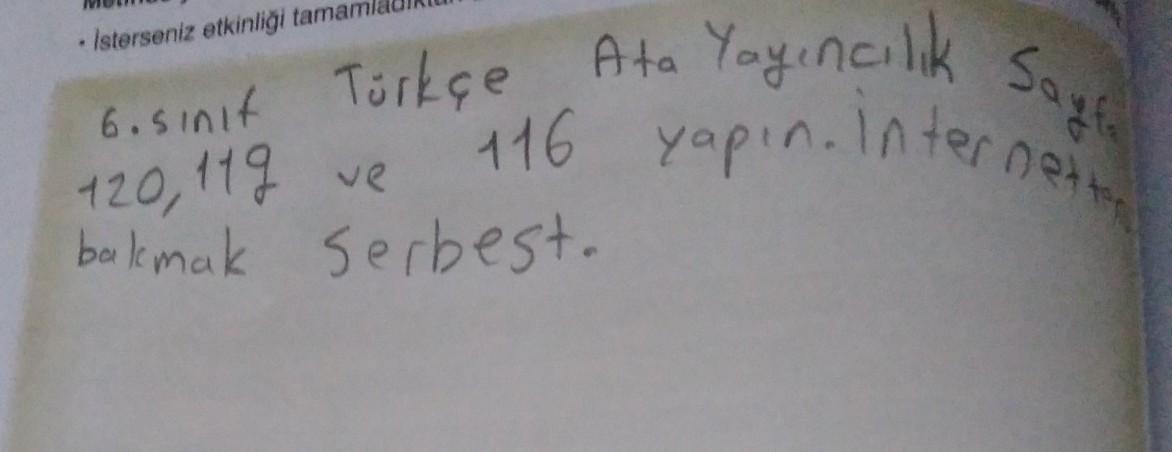 · İsterseniz etkinliği
6.sınıf Türkçe Ata Yayıncılık Sayfa
120,119 ve 116 yapın. İnternetten
bakmak Serbest.